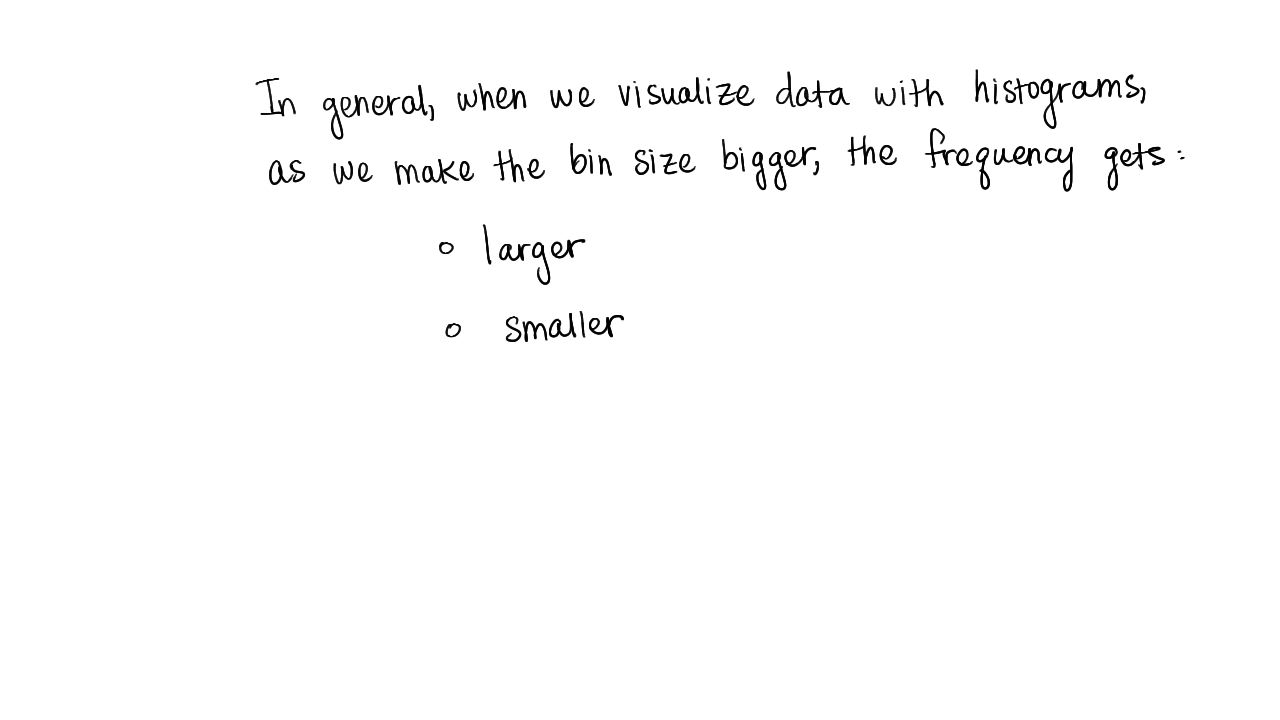 In general, when we visualize data with histograms,
as we make the bin size bigger, the frequency gets:
○ larger
○ smaller